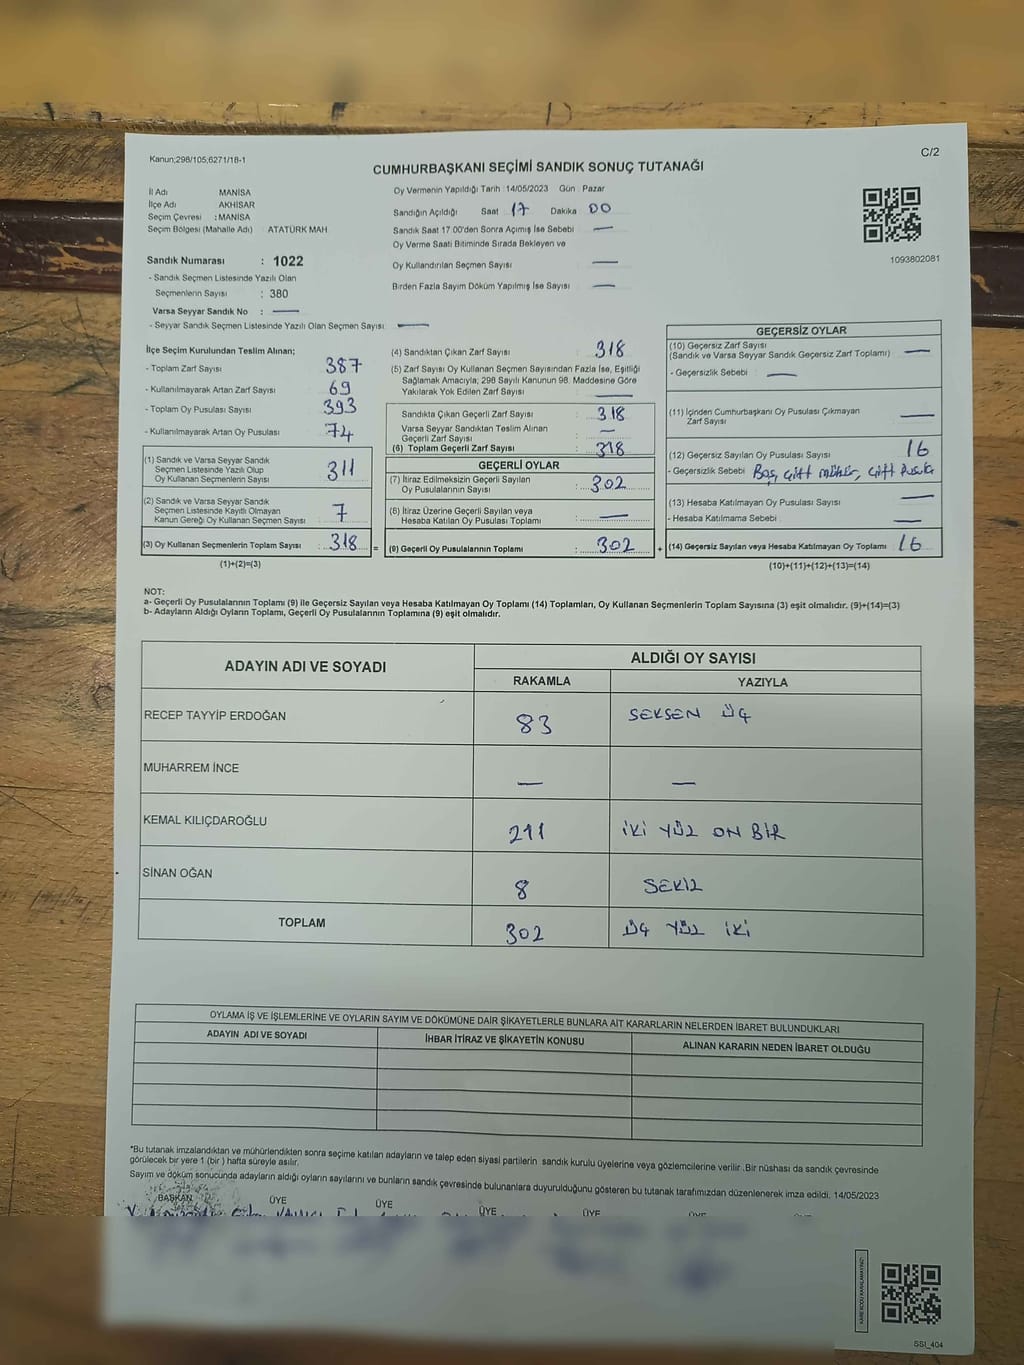 Kanun;298/105;6271/18-1
C/2
CUMHURBAŞKANI SEÇİMİ SANDIK SONUÇ TUTANAĞI
İl Adı MANİSA
İlçe Adı AKHİSAR
Seçim Çevresi : MANİSA
Seçim Bölgesi (Mahalle Adı) ATATÜRK MAH
Sandık Numarası : 1022
- Sandık Seçmen Listesinde Yazılı Olan
Seçmenlerin Sayısı : 380
Varsa Seyyar Sandık No : —
- Seyyar Sandık Seçmen Listesinde Yazılı Olan Seçmen Sayısı: —
Oy Vermenin Yapıldığı Tarih : 14/05/2023 Gün : Pazar
Sandığın Açıldığı Saat 17 Dakika 00
Sandık Saat 17.00'den Sonra Açımış İse Sebebi —
Oy Verme Saati Bitiminde Sırada Bekleyen ve
Oy Kullandırılan Seçmen Sayısı : —
Birden Fazla Sayım Döküm Yapılmış İse Sayısı : —
1093802081
İlçe Seçim Kurulundan Teslim Alınan;
- Toplam Zarf Sayısı : 387
- Kullanılmayarak Artan Zarf Sayısı : 69
- Toplam Oy Pusulası Sayısı : 393
- Kullanılmayarak Artan Oy Pusulası : 74
(1) Sandık ve Varsa Seyyar Sandık
Seçmen Listesinde Yazılı Olup
Oy Kullanan Seçmenlerin Sayısı : 311
(2) Sandık ve Varsa Seyyar Sandık
Seçmen Listesinde Kayıtlı Olmayan
Kanun Gereği Oy Kullanan Seçmen Sayısı : 7
(3) Oy Kullanan Seçmenlerin Toplam Sayısı : 318 =
(1)+(2)=(3)
(4) Sandıktan Çıkan Zarf Sayısı : 318
(5) Zarf Sayısı Oy Kullanan Seçmen Sayısından Fazla İse, Eşitliği
Sağlamak Amacıyla, 298 Sayılı Kanunun 98. Maddesine Göre
Yakılarak Yok Edilen Zarf Sayısı : —
Sandıkta Çıkan Geçerli Zarf Sayısı : 318
Varsa Seyyar Sandıktan Teslim Alınan
Geçerli Zarf Sayısı : —
(6) Toplam Geçerli Zarf Sayısı : 318
GEÇERLİ OYLAR
(7) İtiraz Edilmeksizin Geçerli Sayılan
Oy Pusulalarının Sayısı : 302
(8) İtiraz Üzerine Geçerli Sayılan veya
Hesaba Katılan Oy Pusulası Toplamı : —
(9) Geçerli Oy Pusulalarının Toplamı : 302 +
GEÇERSİZ OYLAR
(10) Geçersiz Zarf Sayısı
(Sandık ve Varsa Seyyar Sandık Geçersiz Zarf Toplamı) : —
- Geçersizlik Sebebi : —
(11) İçinden Cumhurbaşkanı Oy Pusulası Çıkmayan
Zarf Sayısı : —
(12) Geçersiz Sayılan Oy Pusulası Sayısı : 16
- Geçersizlik Sebebi Boş, çift mühür, çift pusula
(13) Hesaba Katılmayan Oy Pusulası Sayısı : —
- Hesaba Katılmama Sebebi : —
(14) Geçersiz Sayılan veya Hesaba Katılmayan Oy Toplamı : 16
(10)+(11)+(12)+(13)=(14)
NOT:
a- Geçerli Oy Pusulalarının Toplamı (9) ile Geçersiz Sayılan veya Hesaba Katılmayan Oy Toplamı (14) Toplamları, Oy Kullanan Seçmenlerin Toplam Sayısına (3) eşit olmalıdır. (9)+(14)=(3)
b- Adayların Aldığı Oyların Toplamı, Geçerli Oy Pusulalarının Toplamına (9) eşit olmalıdır.
ADAYIN ADI VE SOYADI
ALDIĞI OY SAYISI
RAKAMLA YAZIYLA
RECEP TAYYİP ERDOĞAN 83 SEKSEN ÜÇ
MUHARREM İNCE — —
KEMAL KILIÇDAROĞLU 211 İKİ YÜZ ON BİR
SİNAN OĞAN 8 SEKİZ
TOPLAM 302 ÜÇ YÜZ İKİ
OYLAMA İŞ VE İŞLEMLERİNE VE OYLARIN SAYIM VE DÖKÜMÜNE DAİR ŞİKAYETLERLE BUNLARA AİT KARARLARIN NELERDEN İBARET BULUNDUKLARI
ADAYIN ADI VE SOYADI İHBAR İTİRAZ VE ŞİKAYETİN KONUSU ALINAN KARARIN NEDEN İBARET OLDUĞU
*Bu tutanak imzalandıktan ve mühürlendikten sonra seçime katılan adayların ve talep eden siyasi partilerin sandık kurulu üyelerine veya gözlemcilerine verilir .Bir nüshası da sandık çevresinde
görülecek bir yere 1 (bir ) hafta süreyle asılır.
Sayım ve döküm sonucunda adayların aldığı oyların sayılarını ve bunların sandık çevresinde bulunanlara duyurulduğunu gösteren bu tutanak tarafımızdan düzenlenerek imza edildi. 14/05/2023
BAŞKAN ÜYE ÜYE ÜYE ÜYE
KARE KODU KARALAMAYINIZ!
SSI_404